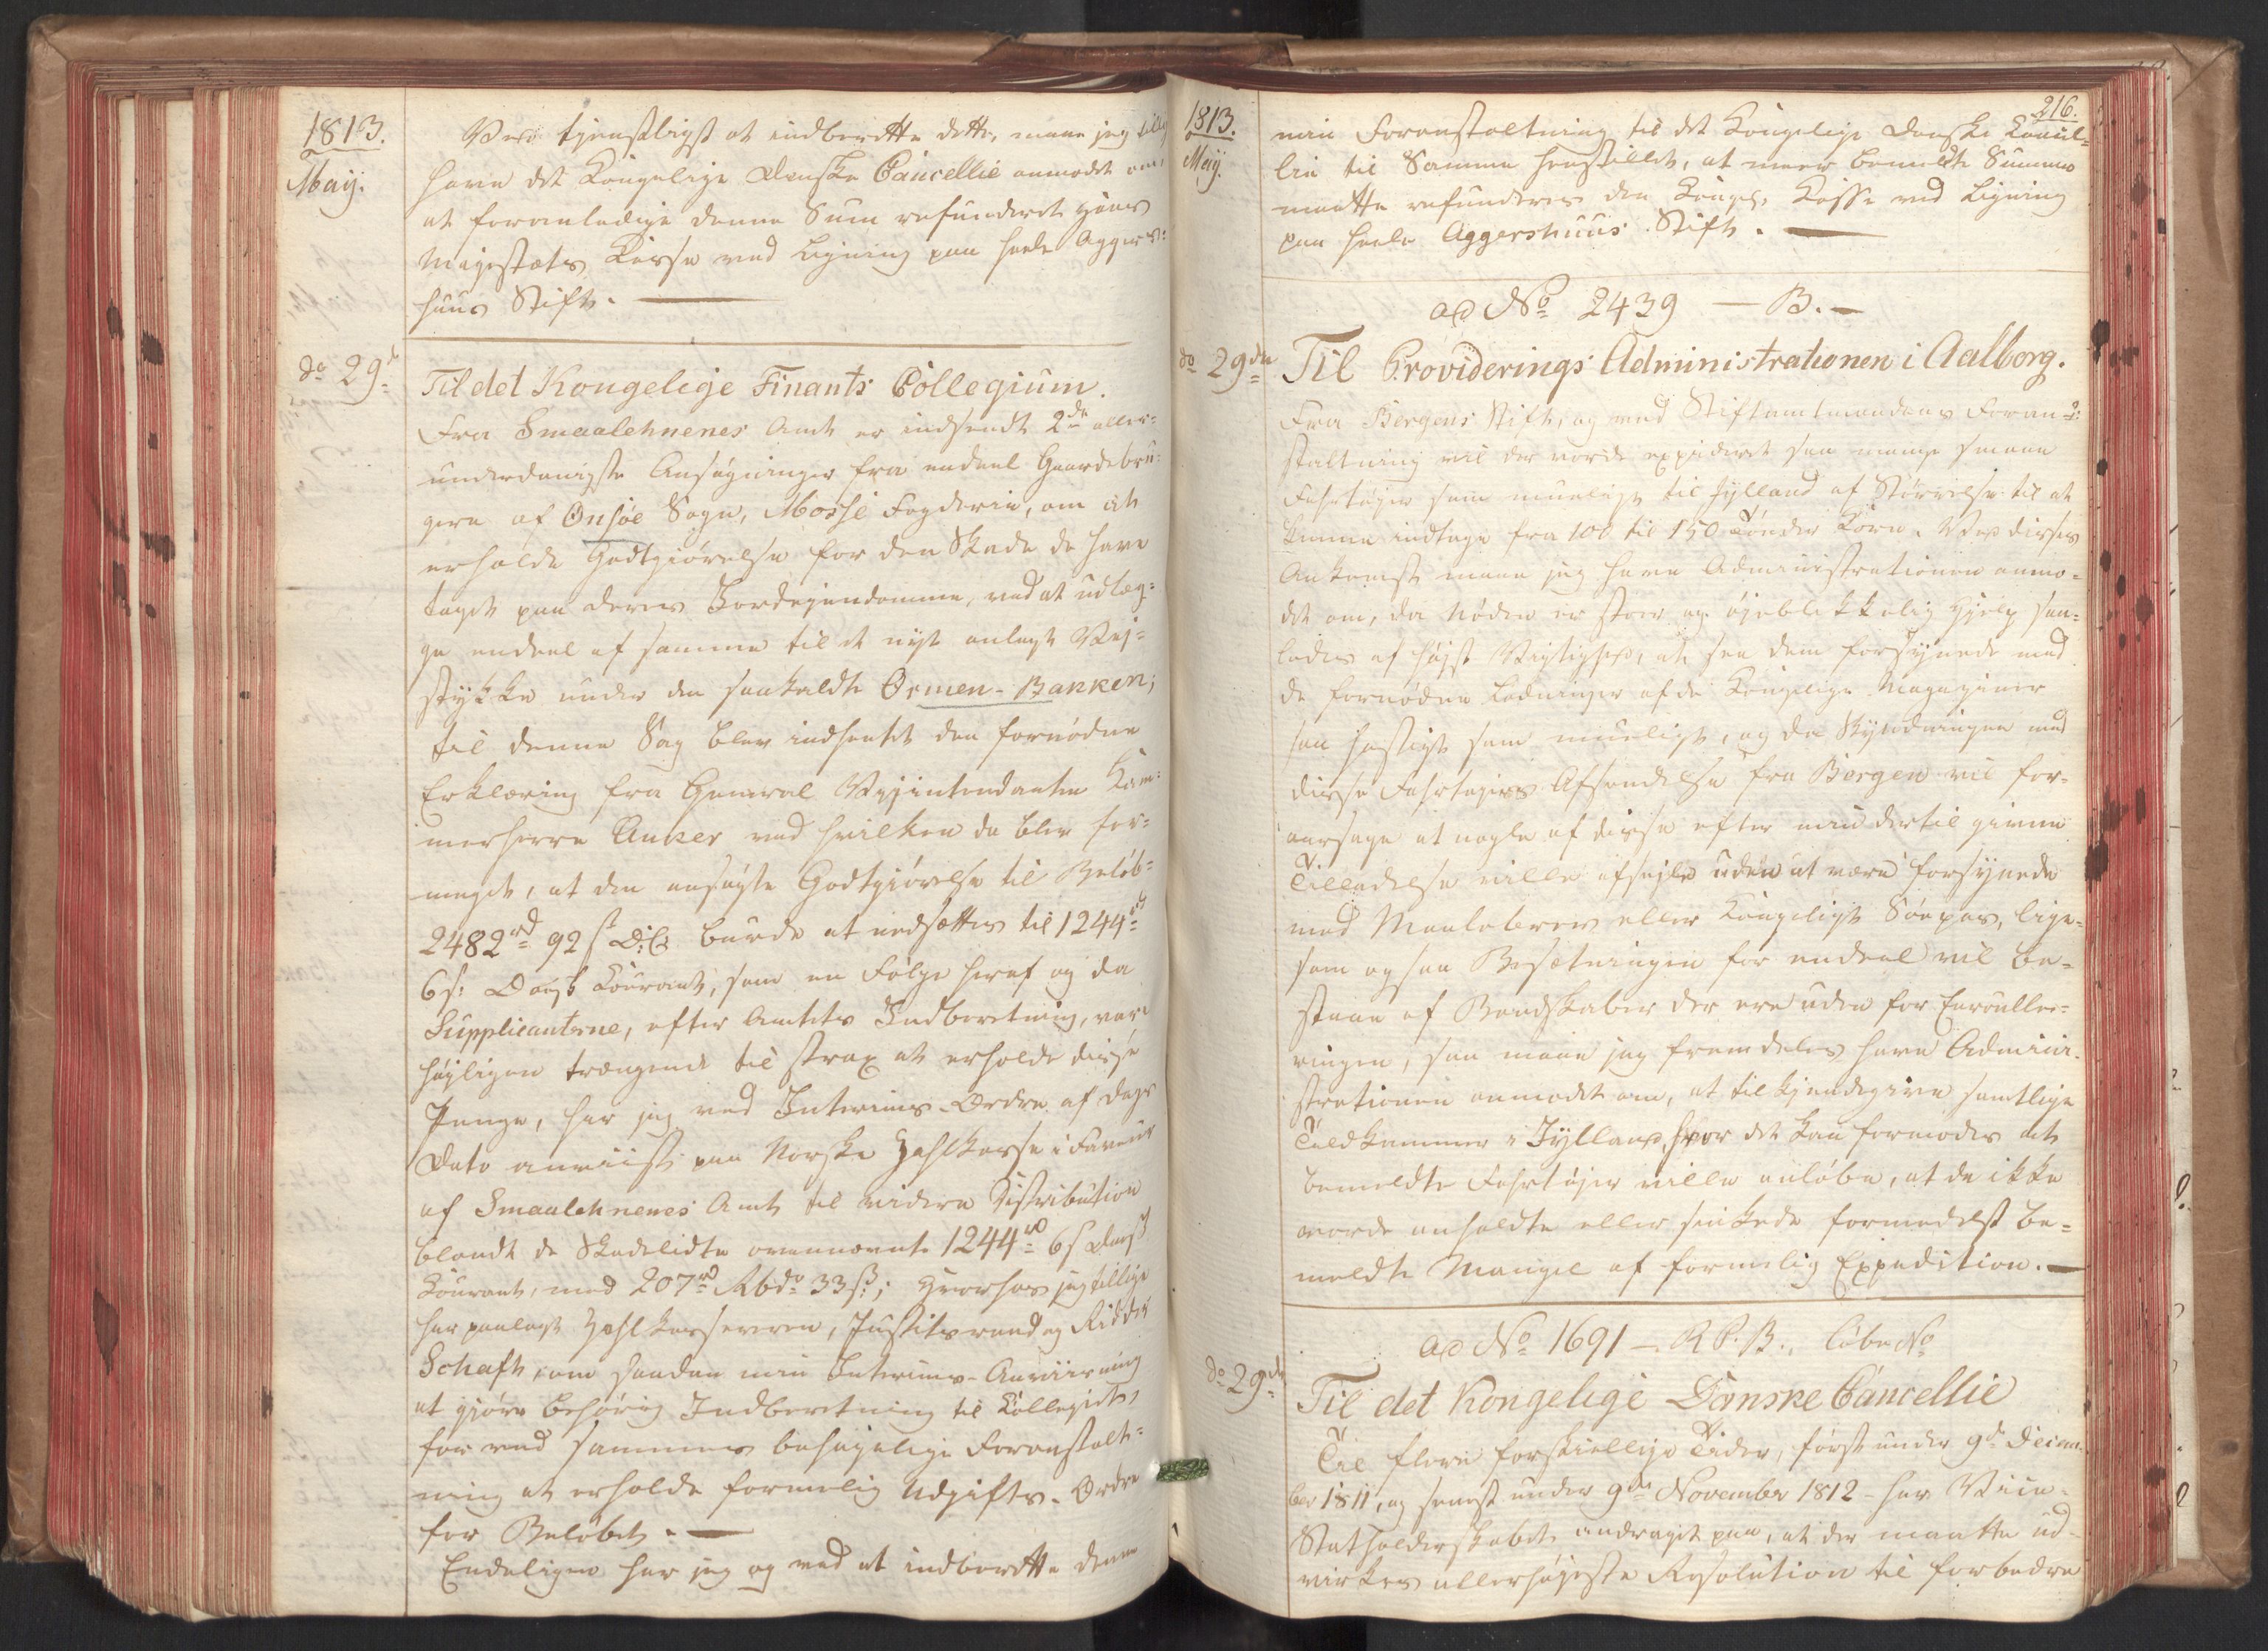 1813.
May.
Ved tjenstligst at indberette dette, maae jeg tillige
have det Kongelige Danske Cancellie anmodet om,
at foranledige denne Sum refunderet Hans
Majestæts Kasse ved Ligning paa heele Aggers=
huus Stift. —
do 29de
Til det Kongelige Finants Collegium.
Fra Smaalehnenes Amt er indsendt 2de aller=
underdanigste Ansøgninger fra endeel Gaardebru=
gere af Onsøe Sogn, Mosse Fogderie, om at
erholde Godtgiørelse for den Skade de have
taget paa deres Jordejendomme, ved at udlæg=
ge endeel af samme til et nyt anlagt Vej=
stykke under den saakaldte Ormen-Banken;
til denne Sag blev indhentet den fornødne
Erklæring fra General Vejintendanten Kam=
merherre Anker ved hvilken da blev for=
meent, at den ansøgte Godtgiørelse til Beløb=
2482rd 92 s D:C: burde at nedsættes til 1244rd
6 s: Dansk Courant, som en Følge heraf og da
Supplicanterne, efter Amtets Indberetning, vare
højligen trængende til strax at erholde disse
Penge, har jeg ved Interims-Ordre af Dags
Dato anviist paa Norske Zahlkasse i Faveur
af Smaalehnenes Amt til videre Distribution
blandt de Skadelidte ovennævnte 1244rd 6 s Dansk
Courant, med 207rd Rbd 33 s; hvorhos jeg tillige
har paalagt Zahlkasserer, Justitsraad og Ridder
Schaft, om saadan min Interims-Anviisning
at gjøre behørig Indberetning til Collegiet,
for ved sammes behagelige Foranstalt=
ning at erholde formelig Udgifts-Ordre
for Beløbet. —
Endeligen har jeg og ved at indberette denne
216.
1813.
May.
min Foranstaltning til det Kongelige Danske Cancel=
lie til Samme henstillet, at meer bemeldte Summa
maatte refunderes den Kongel. Kasse ved Ligning
paa heele Aggershuus Stift. —
ad No 2439 — B. —
do 29de
Til Providerings Administrationen i Aalborg.
Fra Bergens Stift, og ved Stiftamtmandens Foran=
staltning vil der vorde expederet saa mange smaae
Fartøjer som mueligt til Jylland af Størrelse til at
kunne indtage fra 100 til 150 Tønder Korn. Ved disses
Ankomst maae jeg have Administrationen anmo=
det om, da Nøden er stor og øjeblikkelig Hjelp saa=
ledes af højst Vigtighed, at see dem forsynede med
de fornødne Ladninger af de Kongelige Magaziner
saa hastigt som mueligt, og da Skyndingen med
disse Fartøjers Afsendelse fra Bergen vil for=
aarsage at nogle af disse efter min dertil givne
Tilladelse ville afsejle uden at være forsynede
med Maalebrev eller Kongeligt Søepas, lige=
som ogsaa Besætningen for endeel vil be=
staae af Mandskaber der ere uden for Enroulle=
ringen, saa maae jeg fremdeles have Admini=
strationen anmodet om, at tilkjendegive samtlige
Toldkammer i Jylland, hvor det kan formodes at
bemeldte Fartøjer ville anløbe, at de ikke
vorde anholdte eller sinkede formedelst be=
meldte Mangel af formelig Expedition. —
ad No 1691 — R P. B., Løbe No
do 29de
Til det Kongelige Danske Cancellie
Til flere forskiellige Tider, først under 9d Decem=
ber 1811, og senest under 9de November 1812 – har Vice-
Statholderskabet andraget paa, at der maatte ud=
virkes allerhøjeste Resolution til forbedre